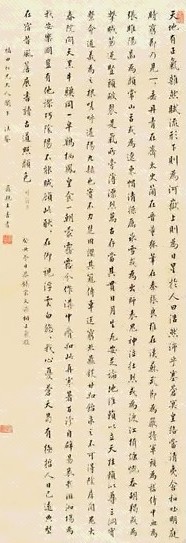 天地有正氣雜然賦流形下則為河嶽上則為日星於人曰浩然沛乎塞蒼冥皇路當清夷含和吐明庭
時窮節乃見一一垂丹青在齊太史簡在晉董狐筆在秦張良椎在漢蘇武節為嚴將軍頭為嵇侍中血為
張睢陽齒為顏常山舌或為遼東帽清操厲冰雪或為出師表鬼神泣壯烈或為渡江楫慷慨吞胡羯或為
擊賊笏逆豎頭破裂是氣所磅礴凜烈萬古存當其貫日月生死安足論地維賴以立天柱賴以尊三綱實
繫命道義為之根嗟予遘陽九隸也實不力楚囚纓其冠傳車送窮北鼎鑊甘如飴求之不可得陰房闃鬼火
春院閟天黑牛驥同一皂雞棲鳳凰食一朝蒙霧露分作溝中瘠如此再寒暑百沴自辟易哀哉沮洳場為
我安樂國豈有他繆巧陰陽不能賊顧此耿耿在仰視浮雲白悠悠我心憂蒼天曷有極哲人日已遠典型
在夙昔風簷展書讀古道照顏色